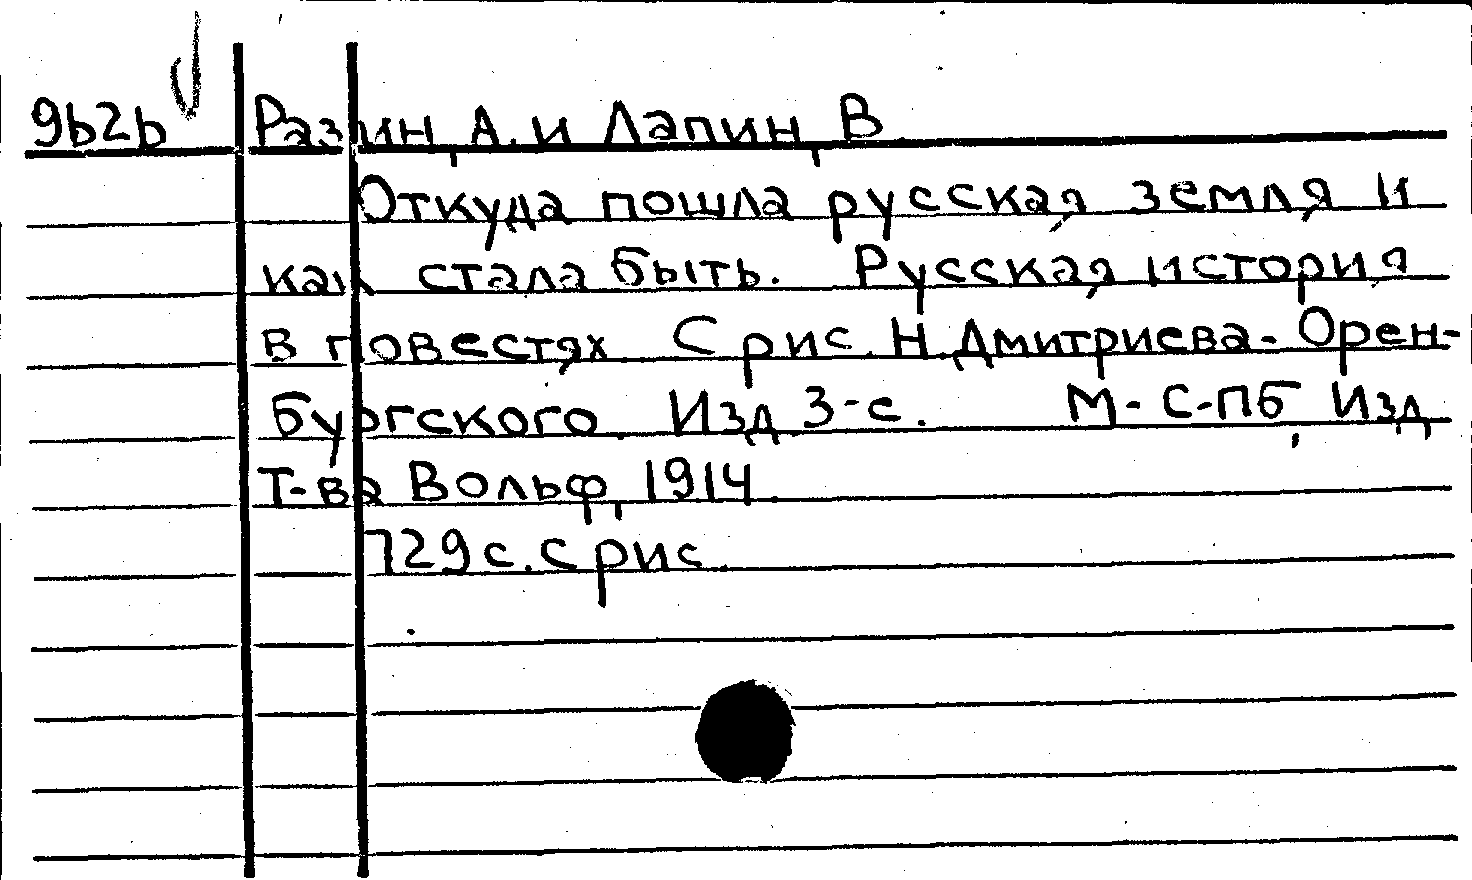 9b2b Разин, А. и Лапин, В
Откуда пошла русская земля и
как стала быть. Русская история
в повестях. С рис. Н. Дмитриева-Орен-
бургского. Изд. 3-е. М.-С-Пб, Изд.
Т-ва Вольф, 1914.
729 с. с рис.